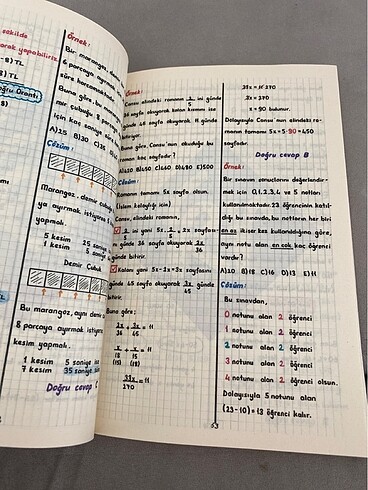 şekilde
arak yapabiliriz.
8) TL
8) TL
Doğru Orantı
8)
Örnek:
Bir marangoz,
6 parçaya ayırmak
süre harcamaktadır.
Buna göre, bu
mir çubuğu 8 parçaya
için kaç saniye
A)25 B)30 C)35
Çözüm:
Marangoz, demir çubuğu
ya ayırmak istiyorsa
yapmalı.
5 kesim 25 saniye
1 kesim 5 saniye
Demir Çubuk
Bu marangoz, aynı demir
8 parçaya ayırmak istiyorsa
kesim yapmalı.
1 kesim 5 saniye ise
7 kesim 35 saniye
Doğru cevap C
Örnek:
Cansu elindeki romanın 2/5 ini günde
36 sayfa okuyarak kalan kısmını ise
günde 45 sayfa okuyarak 11 günde
bitiriyor.
Buna göre, Cansu'nun okuduğu bu
roman kaç sayfadır?
A)400 B)450 C)460 D)480 E)500
Çözüm:
Romanın tamamı 5x sayfa olsun.
(İşlem kolaylığı için)
Cansu, elindeki romanın,
2/5 ini yani 5x.2/5 = 2x sayfasını
günde 36 sayfa okuyarak 2x/36
günde bitirir.
Kalanı yani 5x-2x=3x sayfasını
günde 45 sayfa okuyarak 3x/45 günde
bitirir.
Buna göre:
2x/36 + 3x/45 = 11
x/18 + x/15 = 11
(15) (18)
33x/270 = 11
33x = 11.270
3x = 270
x = 90 bulunur.
Dolayısıyla Cansu'nun elindeki ro-
manın tamamı 5x = 5.90 = 450
sayfadır.
Doğru cevap B
Örnek:
Bir sınavın sonuçlarını değerlendir-
mek için 0,1,2,3,4 ve 5 notları
kullanılmaktadır. 23 öğrencinin katıl-
dığı bu sınavda, bu notların her biri
en az ikişer kez kullanıldığına göre,
aynı notu alan en çok kaç öğrenci
vardır?
A)20 B)18 C)16 D)13 E)11
Çözüm:
Bu sınavdan,
0 notunu alan 2 öğrenci
1 notunu alan 2 öğrenci
2 notunu alan 2 öğrenci
3 notunu alan 2 öğrenci
4 notunu alan 2 öğrenci olsun.
Dolayısıyla 5 notunu alan
(23-10) = 13 öğrenci kalır.
53